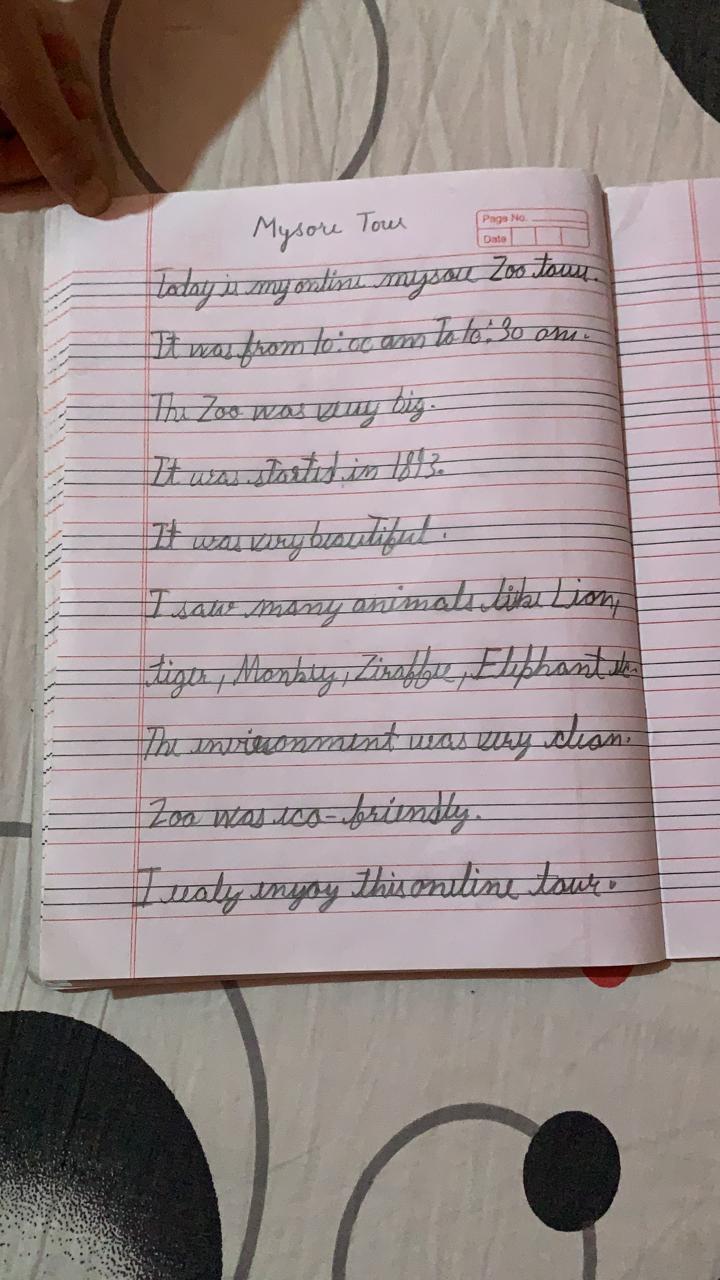 Mysore Tour
Page No.
Date
Today is my online mysore Zoo tour.
It was from 10:00 am To 10:30 am.
The Zoo was very big.
It was started in 1893.
It was very beautiful.
I saw many animals like Lion,
tiger, Monkey, Ziraffee, Elephant etc.
The environment was very clean.
Zoo was eco-friendly.
I realy enjoy this online tour.